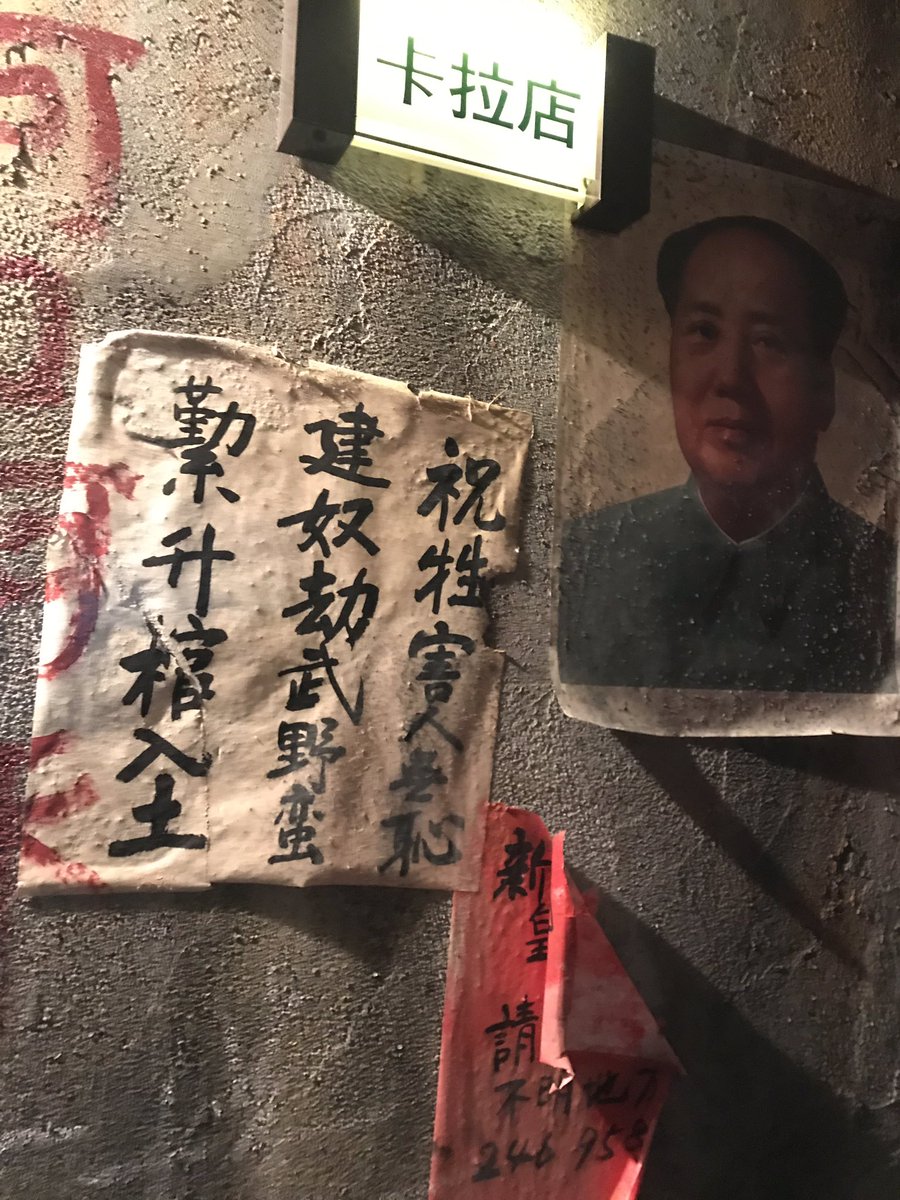 卡拉店
祝牲害人無恥
建奴劫武野蛮
升棺入土
新皇
請
不明地
246 958